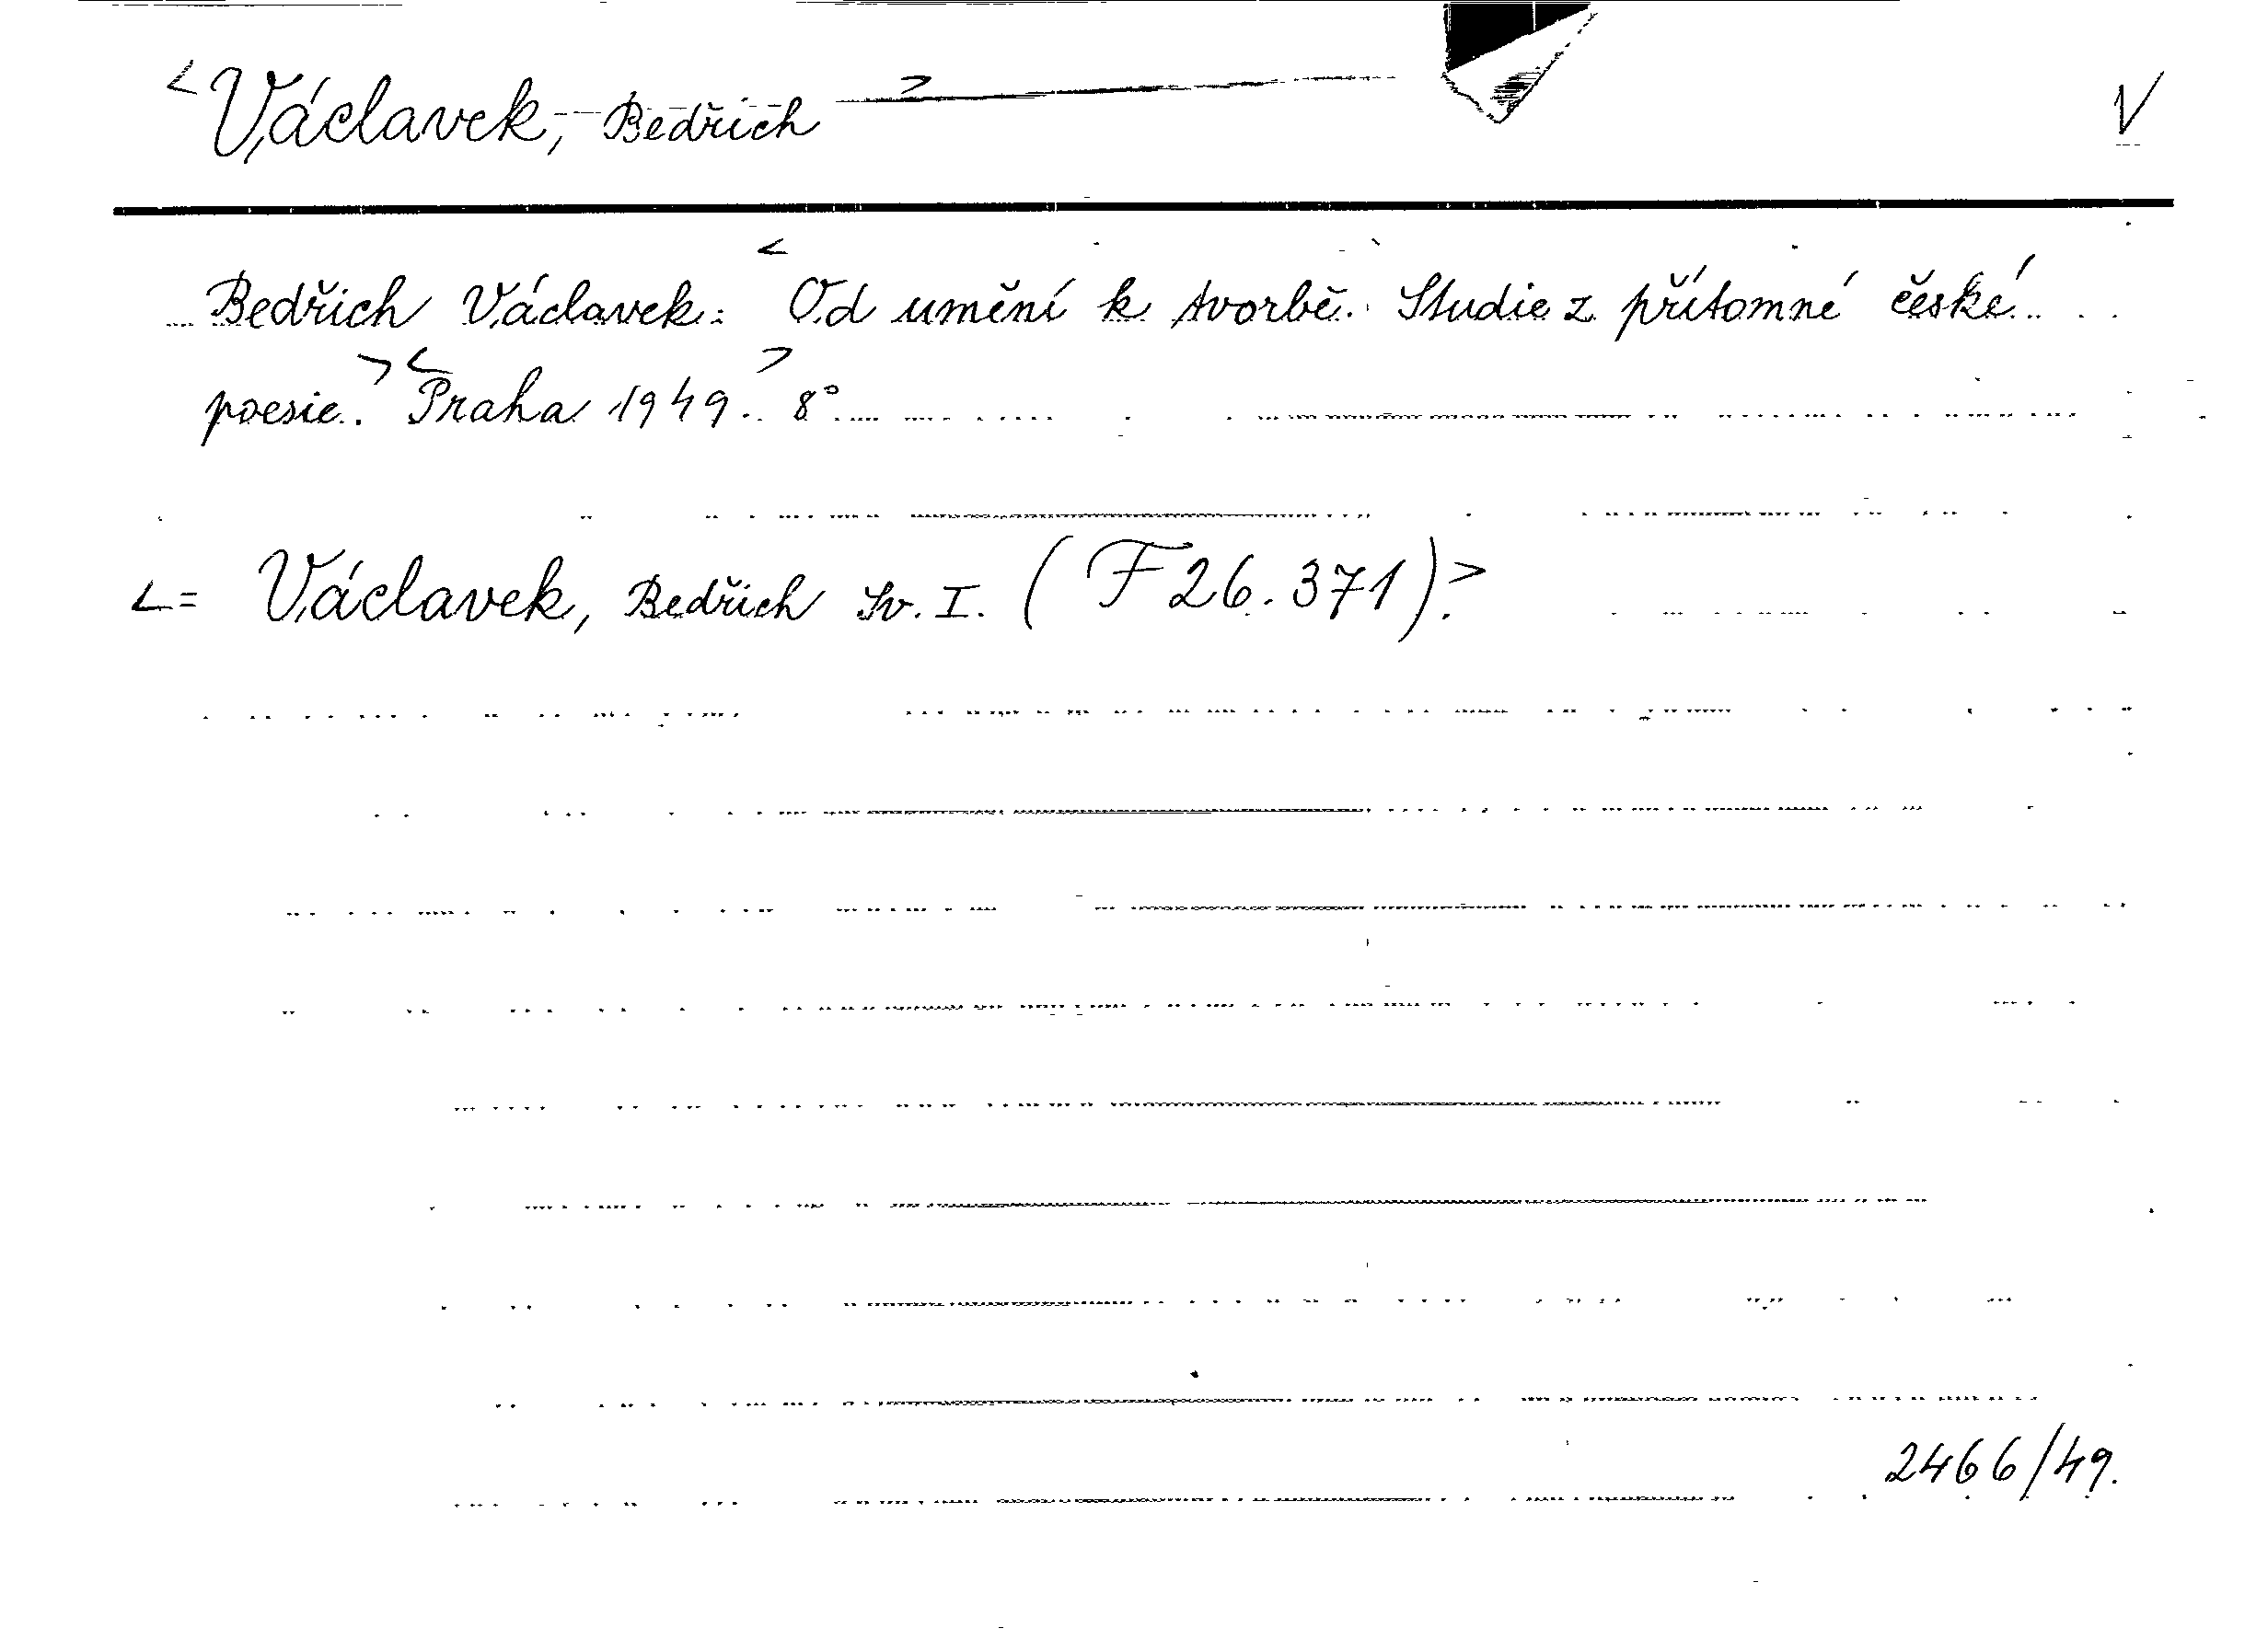 <Václavek, Bedřich> V
Bedřich Václavek: <Od umění k tvorbě. Studie z přítomné české
poesie.> <Praha 1949.> 8°
<= Václavek, Bedřich Sv. I. (F 26.371).>
2466/49.